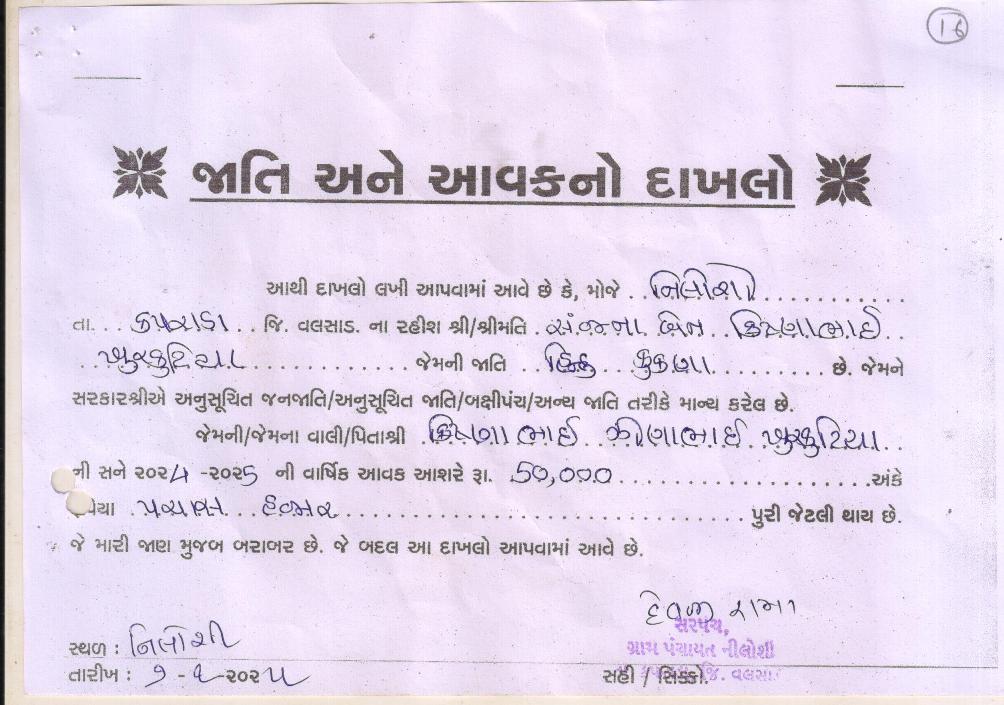 16
જાતિ અને આવકનો દાખલો
આથી દાખલો લખી આપવામાં આવે છે કે, મોજે નિલોશી
તા. કપરાડા જિ. વલસાડ. ના રહીશ શ્રી/શ્રીમતિ સંજના બેન ક્રિષ્ણાભાઈ
ખુરકુટિયા જેમની જાતિ હિન્દુ કુકણા છે. જેમને
સરકારશ્રીએ અનુસૂચિત જનજાતિ/અનુસૂચિત જાતિ/બક્ષીપંચ/અન્ય જાતિ તરીકે માન્ય કરેલ છે.
જેમની/જેમના વાલી/પિતાશ્રી ક્રિષ્ણાભાઈ ઝીણાભાઈ ખુરકુટિયા
ની સને ૨૦૨4 -૨૦૨5 ની વાર્ષિક આવક આશરે રૂા. 50,000 અંકે
પિયા પચાસ હજાર પુરી જેટલી થાય છે.
જે મારી જાણ મુજબ બરાબર છે. જે બદલ આ દાખલો આપવામાં આવે છે.
દેવજી રામા
સરપંચ,
સ્થળ : નિલોશી
ગ્રામ પંચાયત નીલોશી
તારીખ : ૭ - ૬ -૨૦૨૫
સહી / સિક્કો. જિ. વલસાડ